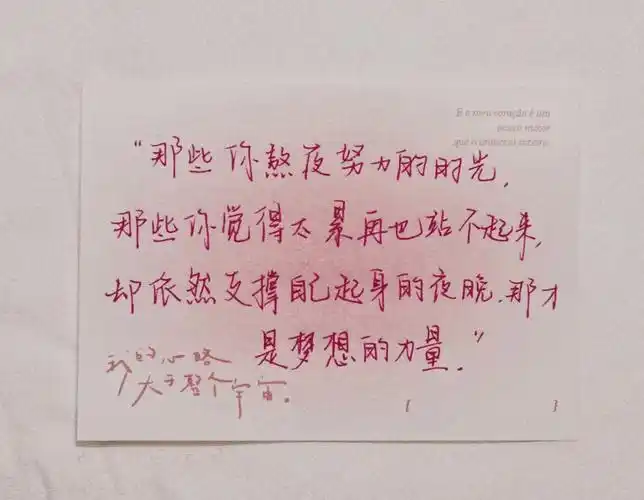 E o meu coração é um
pouco maior
que o universo inteiro.
“那些你熬夜努力的时光,
那些你觉得太累再也站不起来,
却依然支撑自己起身的夜晚.那才
是梦想的力量.”
我的心略
大于整个宇宙。
{ }